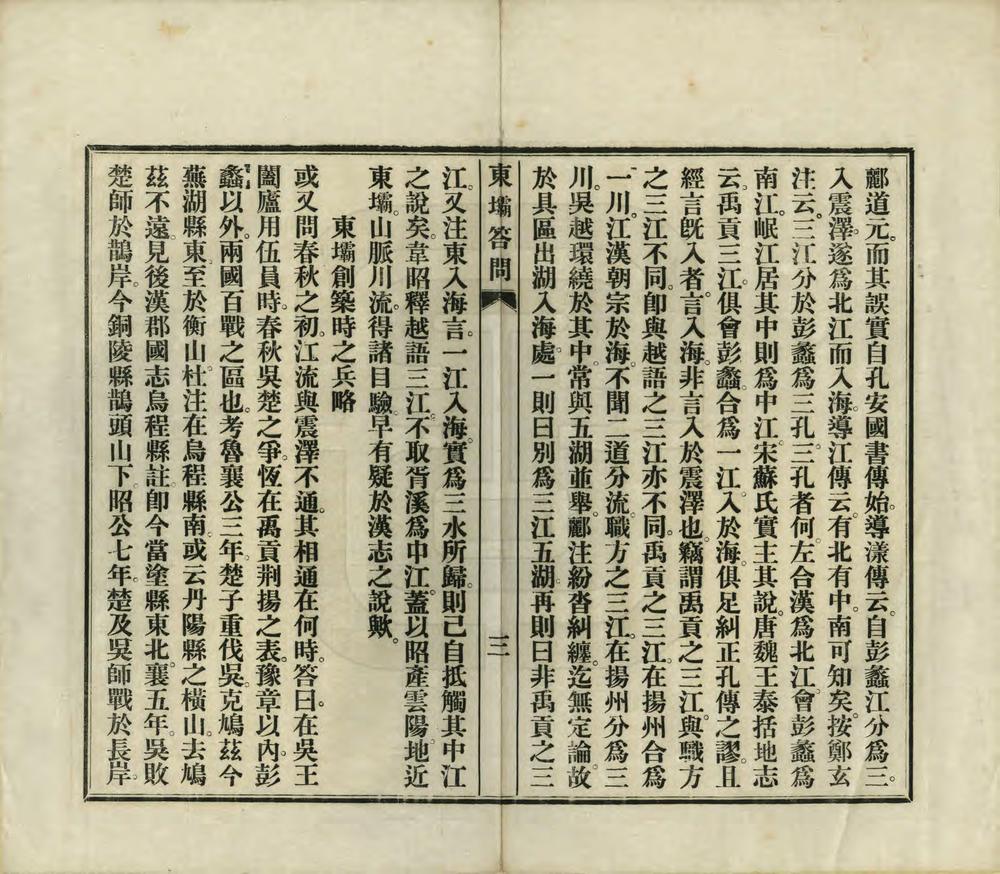 酈道元。而其誤實自孔安國書傳始。導漾傳云。自彭蠡江分爲三。
入震澤。遂爲北江而入海。導江傳云。有北有中。南可知矣。按鄭玄
注云。三江分於彭蠡爲三孔。三孔者何。左合漢爲北江。會彭蠡爲
南江。岷江居其中則爲中江。宋蘇氏實主其說。唐魏王泰括地志
云。禹貢三江。俱會彭蠡。合爲一江。入於海。俱足糾正孔傳之謬。且
經言既入者。言入海。非言入於震澤也。竊謂禹貢之三江。與職方
之三江不同。卽與越語之三江亦不同。禹貢之三江。在揚州合爲
一川。江漢朝宗於海。不聞二道分流。職方之三江。在揚州分爲三
川。吳越環繞於其中。常與五湖並舉。酈注紛沓糾纏。迄無定論。故
於具區出湖入海處。一則曰別爲三江五湖。再則曰非禹貢之三
東壩答問
三
江。又注東入海言。一江入海。實爲三水所歸。則已自抵觸其中江
之說矣。韋昭釋越語三江。不取胥溪爲中江。蓋以昭產雲陽。地近
東壩。山脈川流。得諸目驗。早有疑於漢志之說歟。
東壩創築時之兵略
或又問春秋之初。江流與震澤不通。其相通在何時。答曰。在吳王
闔廬用伍員時。春秋吳楚之爭。恆在禹貢荆揚之表。豫章以內。彭
蠡以外。兩國百戰之區也。考魯襄公三年。楚子重伐吳。克鳩茲今
蕪湖縣東。至於衡山。杜注在烏程縣南。或云丹陽縣之橫山。去鳩
茲不遠。見後漢郡國志烏程縣註。卽今當塗縣東北。襄五年。吳敗
楚師於鵲岸。今銅陵縣鵲頭山下。昭公七年。楚及吳師戰於長岸。